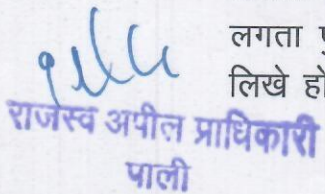 लगता
लिखे
राजस्व अपील प्राधिकारी
पाली